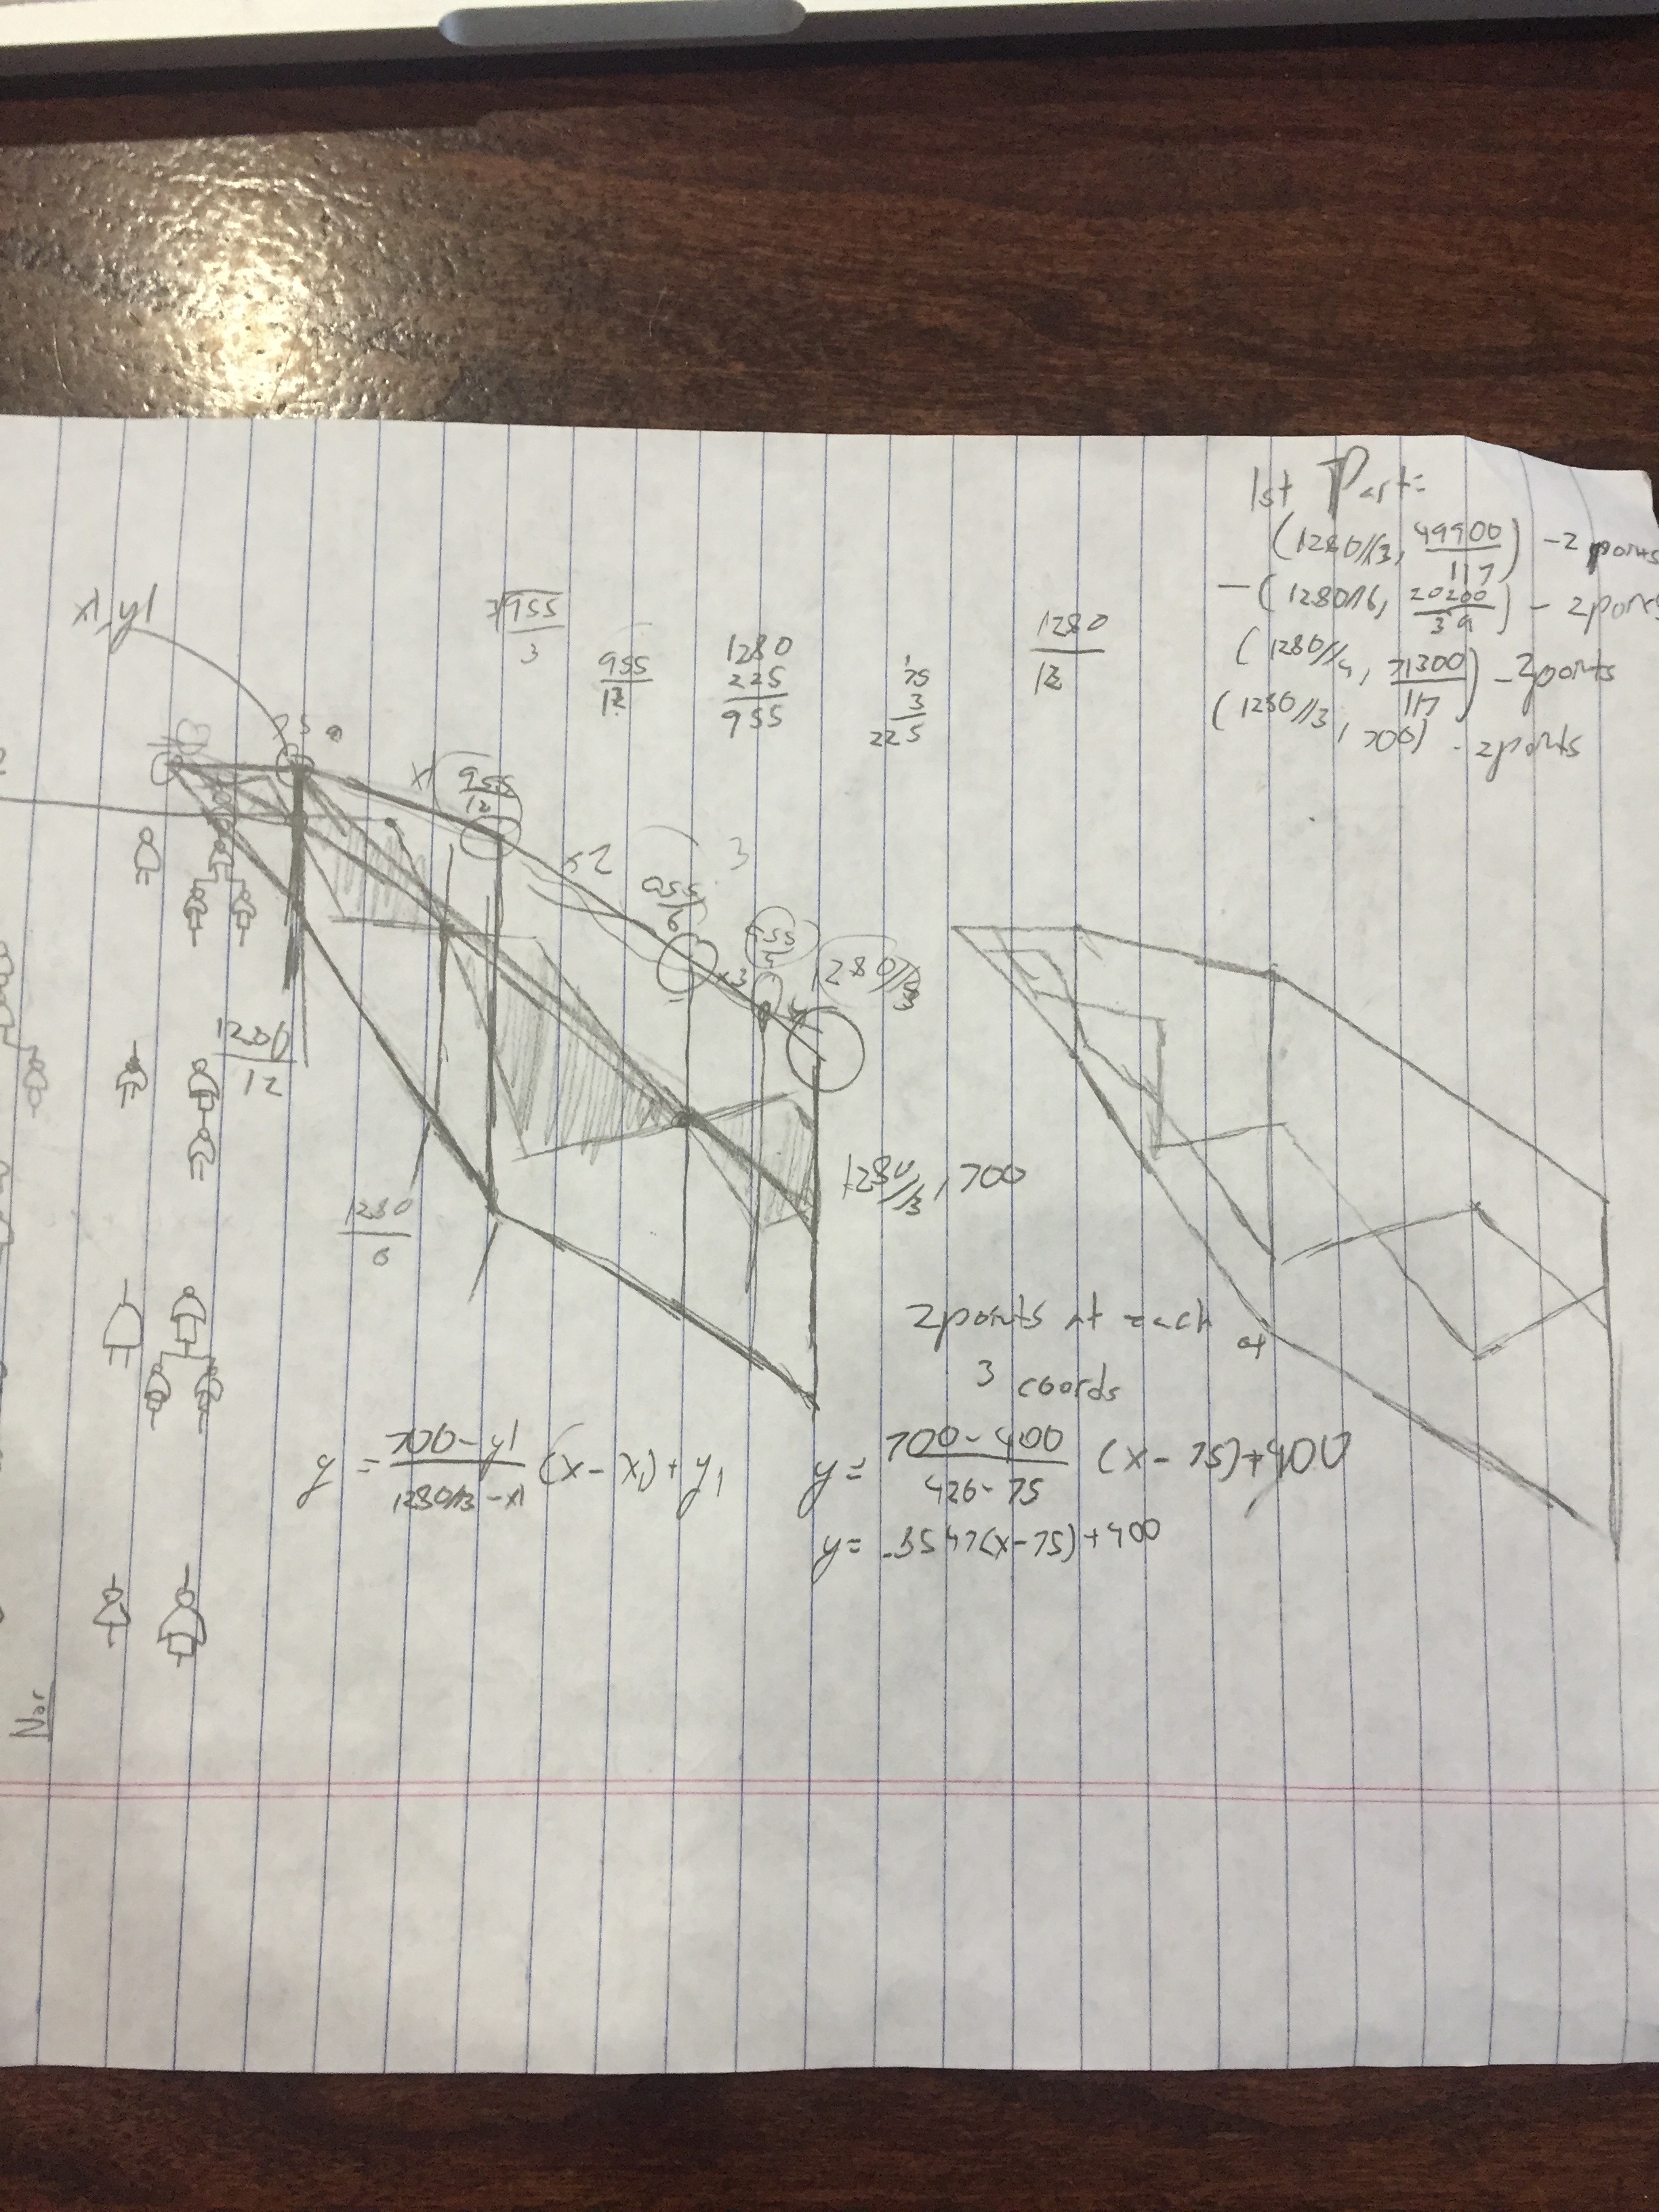 1st Part:
(1280//3, 49900/117) - 2 points
- (1280//6, 20200/39) - 2 points
(1280//4, 71300/117) - 2 points
(1280//3, 700) - 2 points
x1, y1
955
3
955
12
1280
225
955
75
3
225
1280
12
75
x1
955
12
x2
955/6
3
x3
1280//3
1280
12
1280//3, 700
1280
6
2 points at each
3 coords
y = 700-y1 / 1280//3-x1 (x-x1)+y1
y = 700-400 / 426-75 (x-75)+400
y = .8547(x-75)+400
Nor